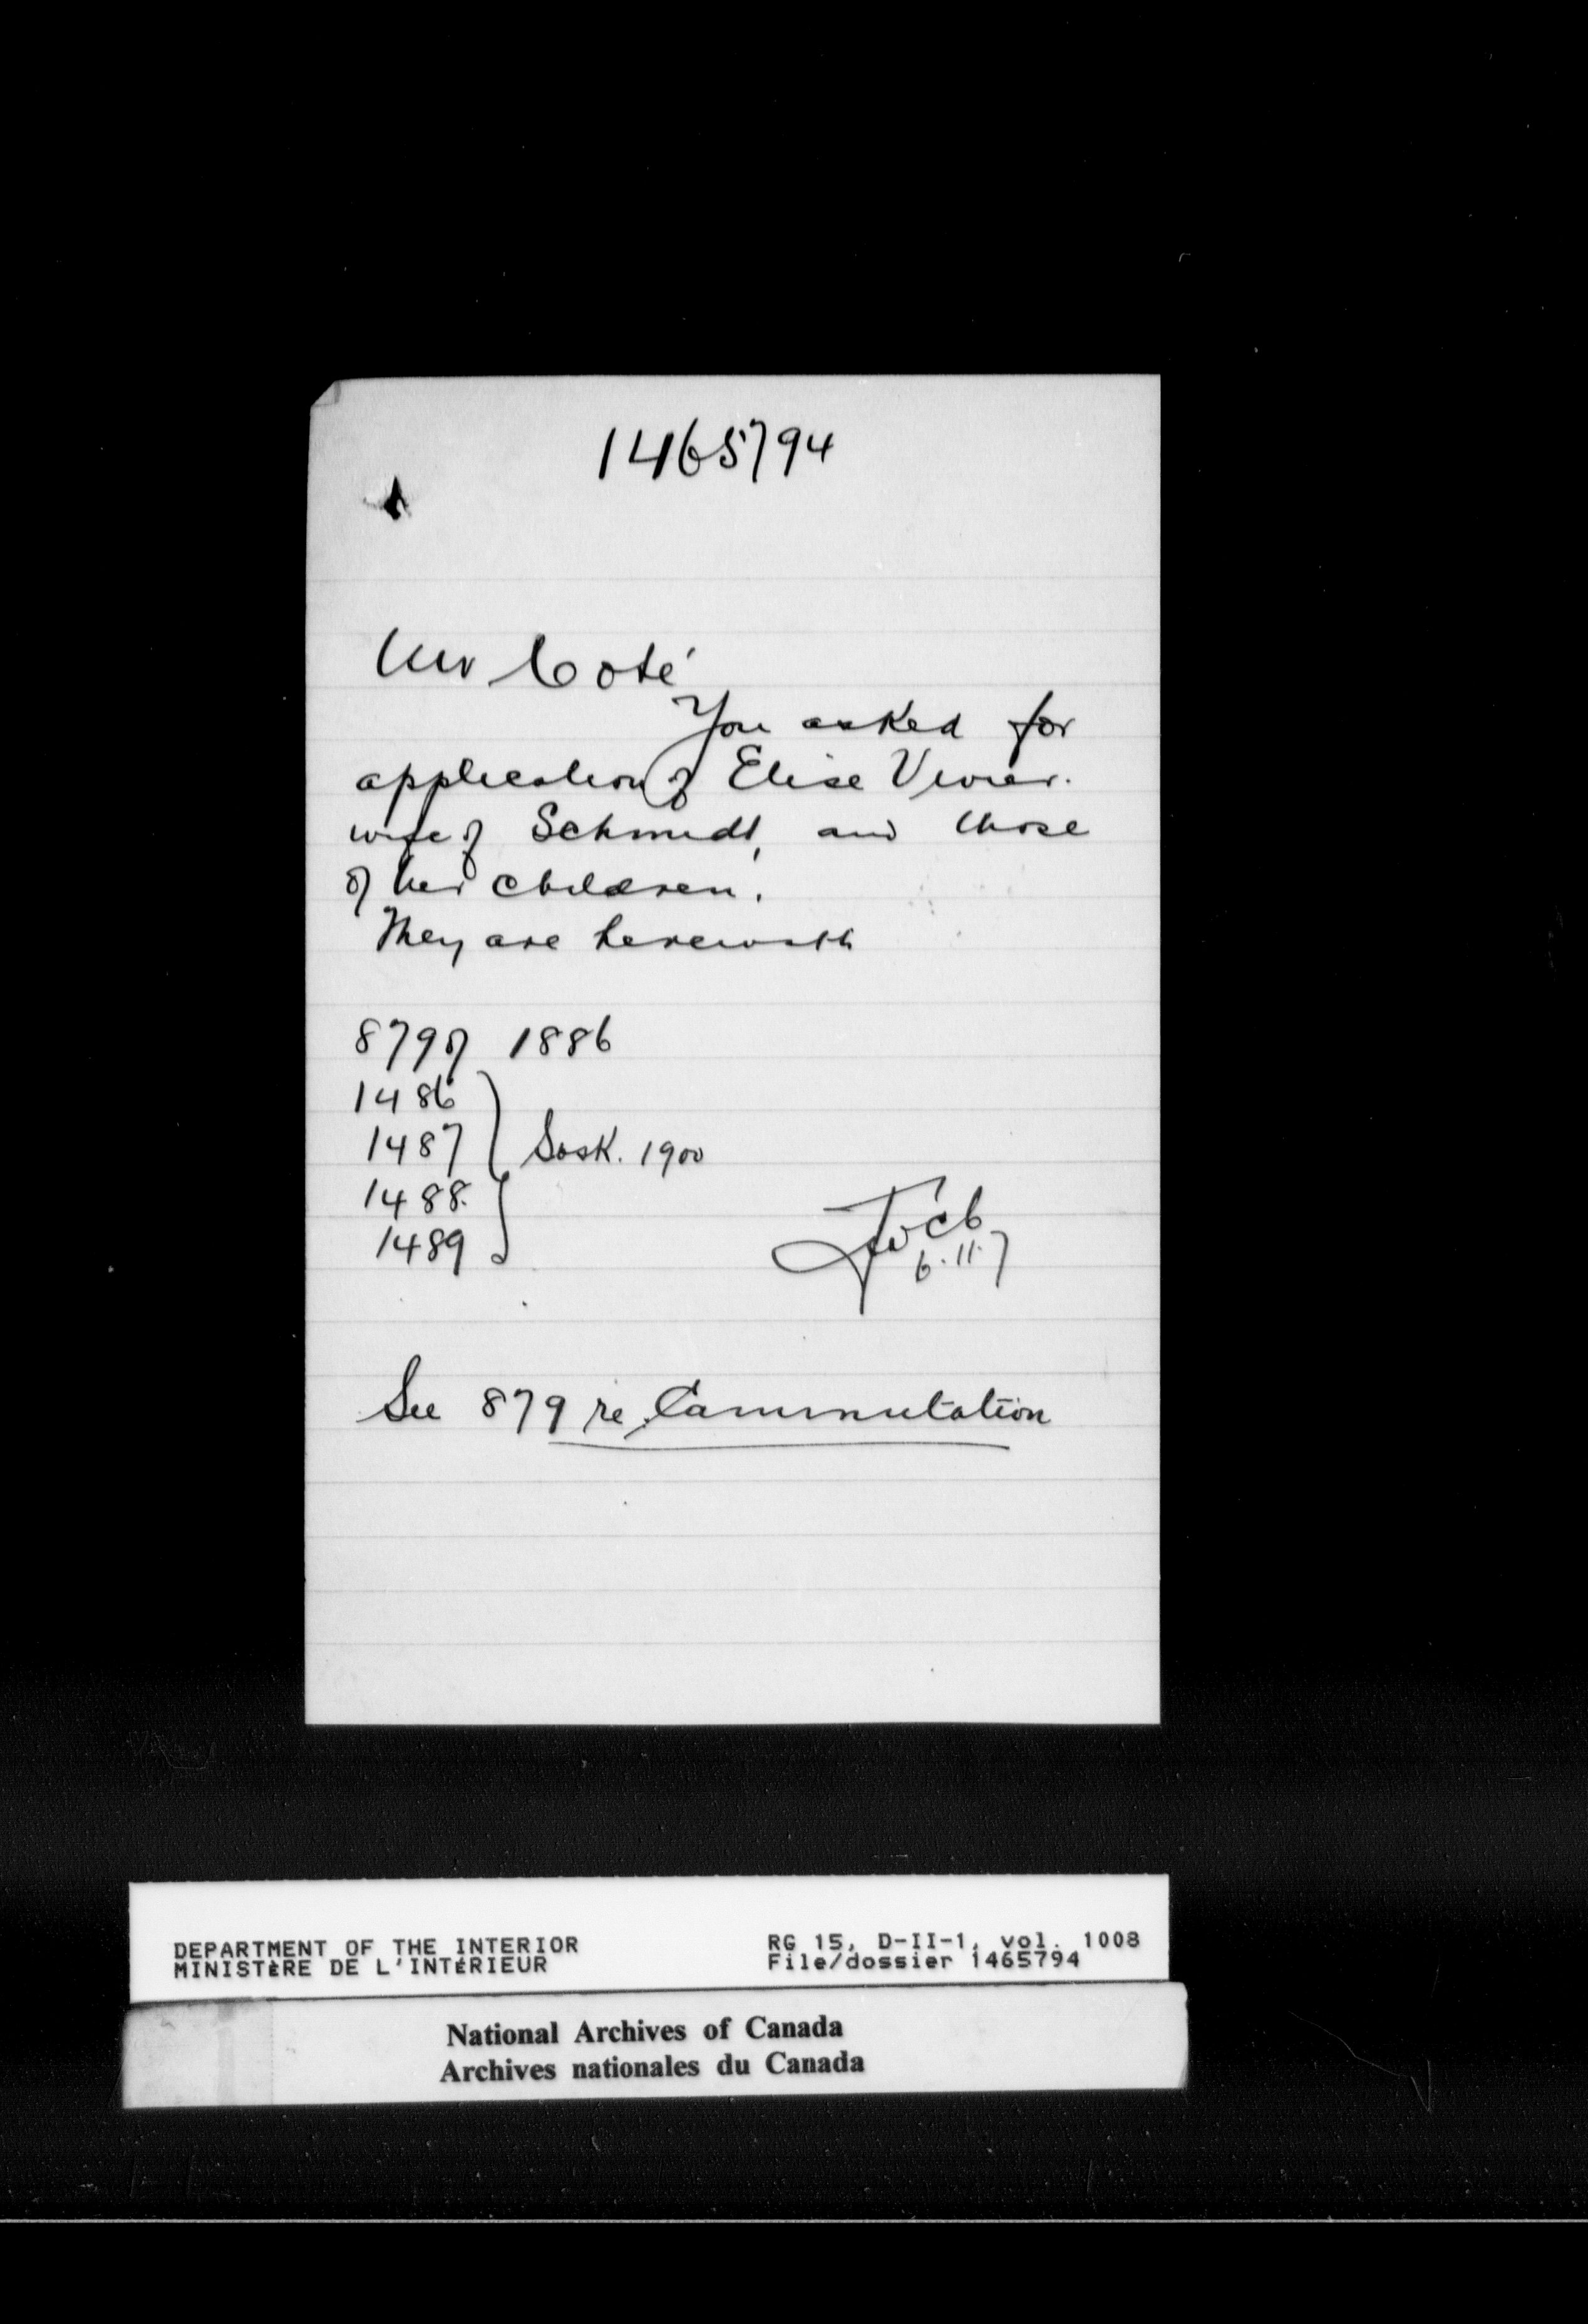 1465794
Mr Coté
You asked for
application of Elise Vivier.
wife of Schmidt, and those
of her children.
They are herewith
879 of 1886
1486
1487 Sask. 1900
1488.
1489
6.11.7
See 879 re Commutation
DEPARTMENT OF THE INTERIOR RG 15, D-II-1, vol. 1008
MINISTÈRE DE L'INTÉRIEUR File/dossier 1465794
National Archives of Canada
Archives nationales du Canada